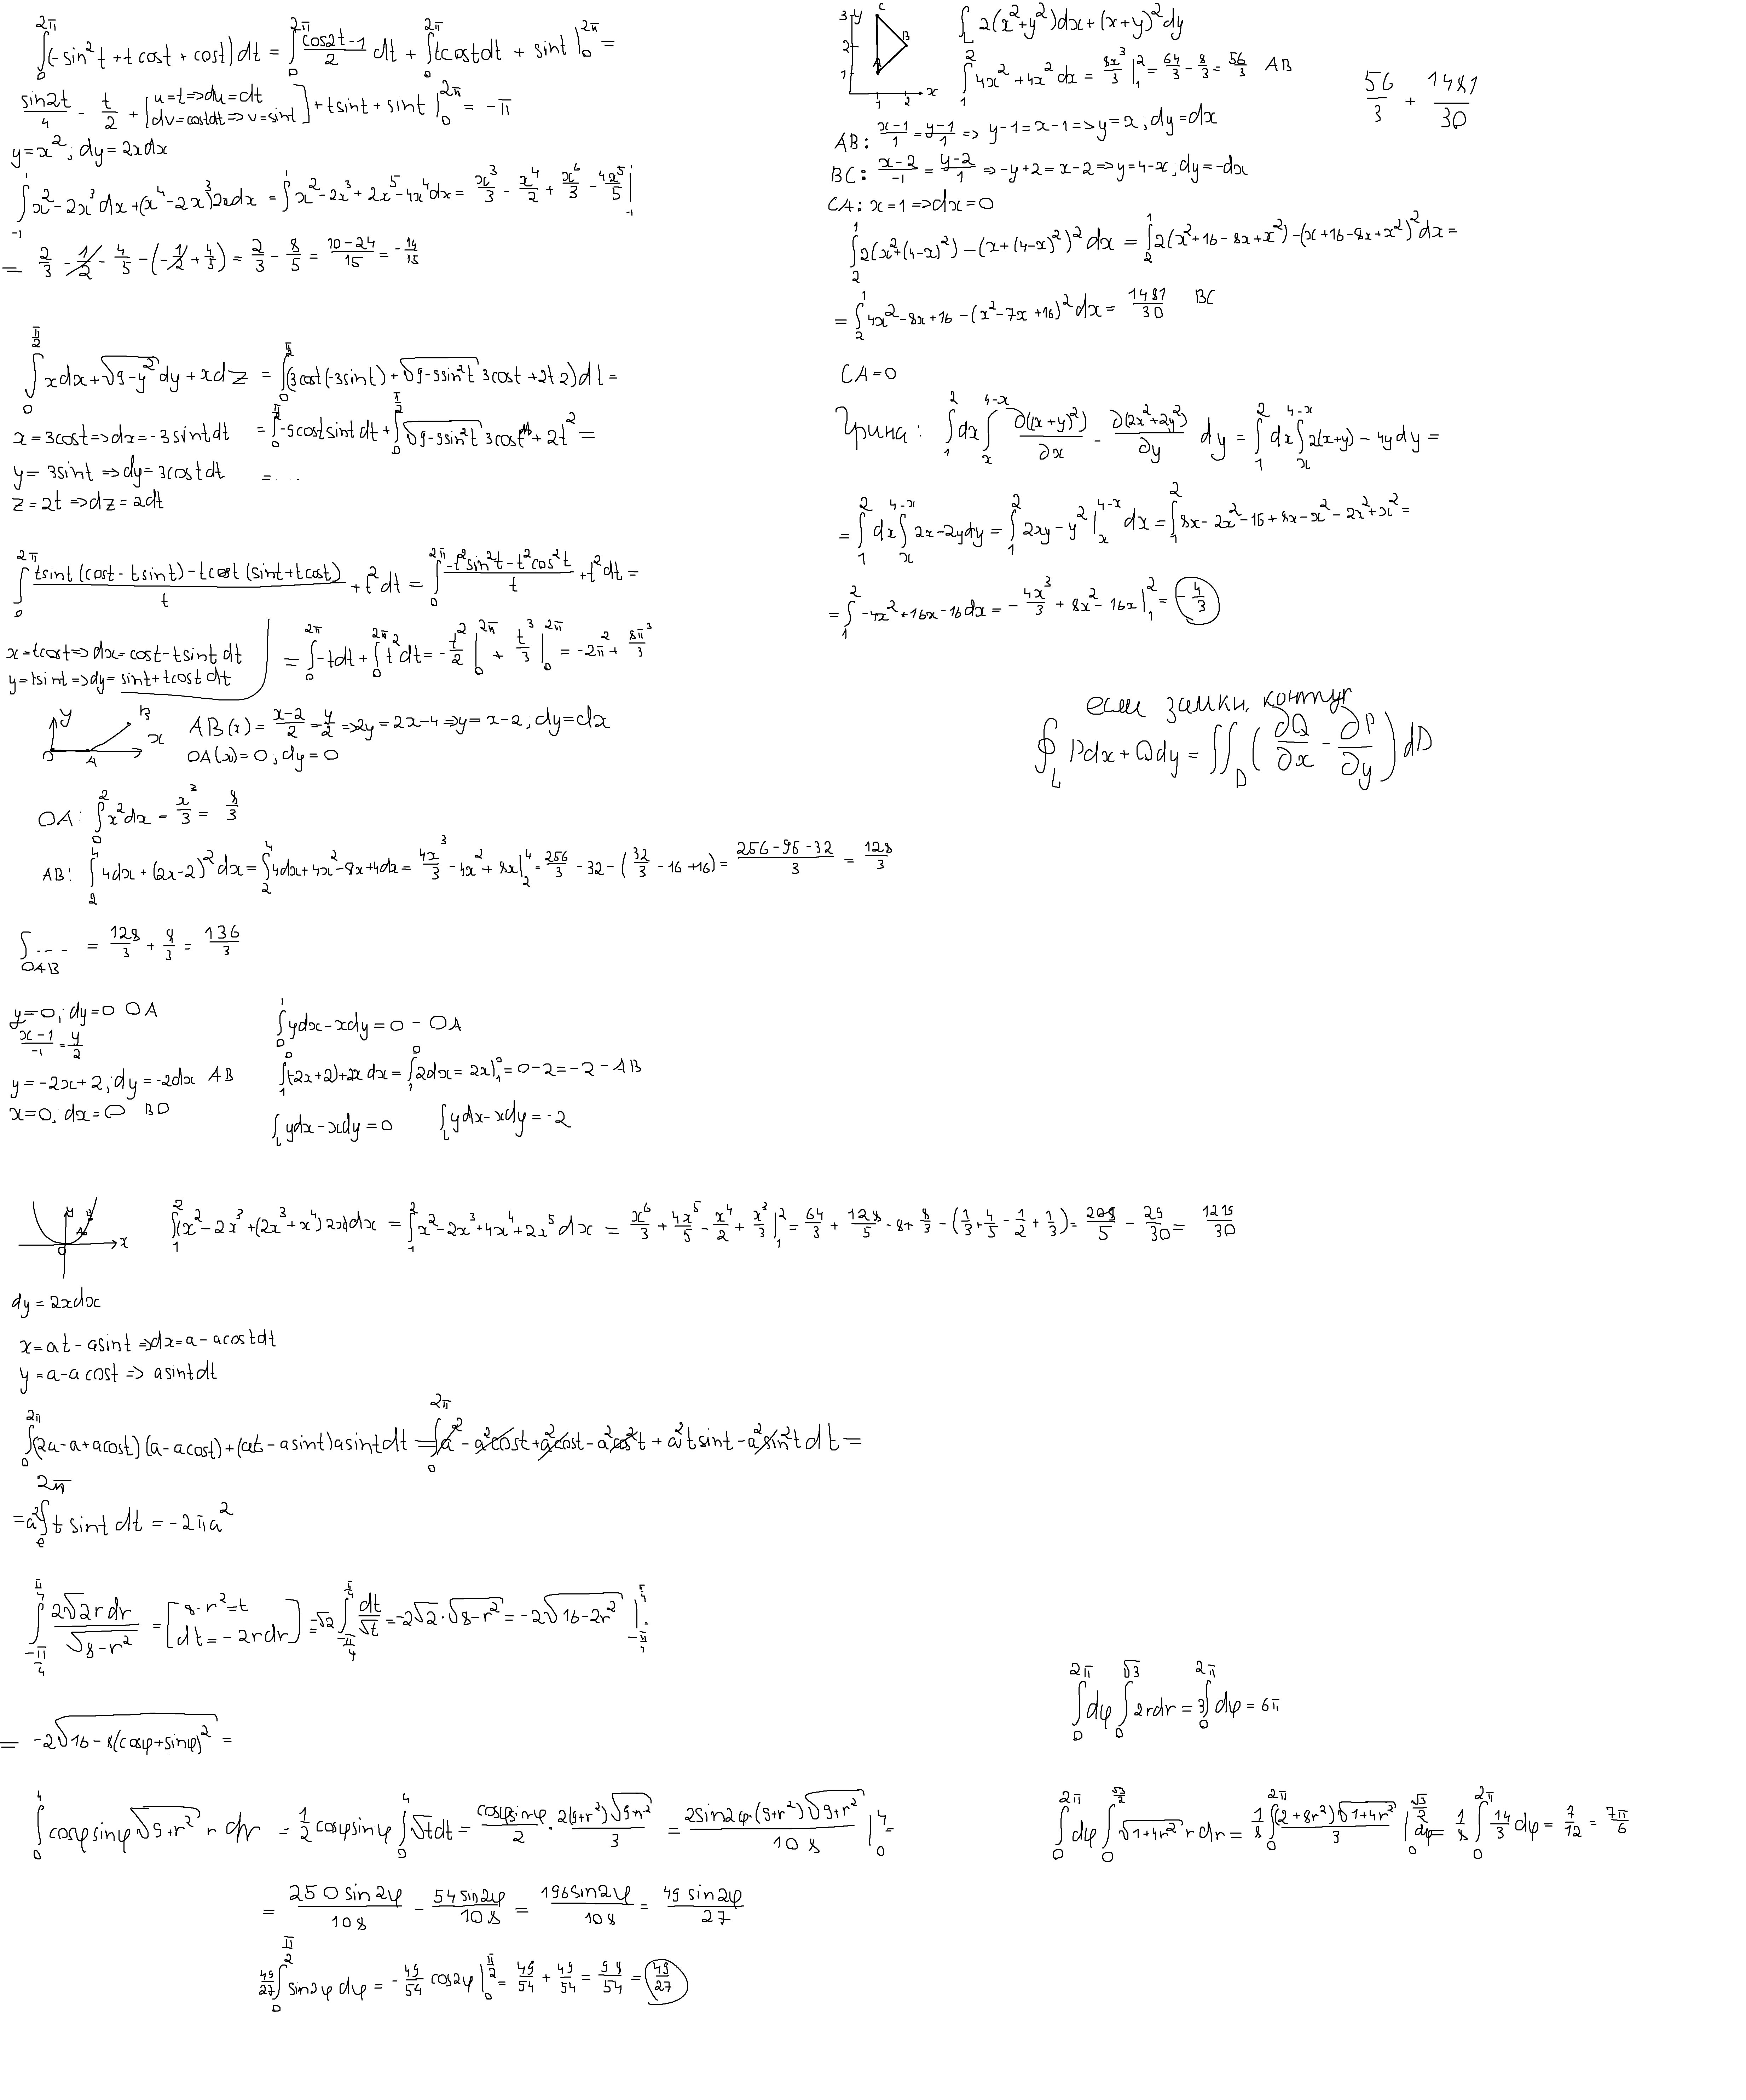 ∫₀^{2π} (-sin²t + t cost + cost) dt = ∫₀^{2π} (cos2t-1)/2 dt + ∫₀^{2π} tcostdt + sint |₀^{2π} =
sin2t/4 - t/2 + [u=t=>du=dt; dv=costdt=>v=sint] + tsint + sint |₀^{2π} = -π
y=x²; dy=2xdx
∫₋₁^1 x²-2x³dx+(x⁴-2x³)2xdx = ∫₋₁^1 x²-2x³+2x⁵-4x⁴dx = x³/3 - x⁴/2 + x⁶/3 - 4x⁵/5 |₋₁^1
= 2/3 - 1/2 - 4/5 - (-1/2 + 4/5) = 2/3 - 8/5 = (10-24)/15 = -14/15
∫₀^{π/2} xdx+√(9-y²)dy+xdz = ∫₀^{π/2} (3cost(-3sint)+√(9-9sin²t) 3cost+2t2)dt =
x=3cost=>dx=-3sintdt = ∫₀^{π/2} -9costsintdt + ∫₀^{π/2} √(9-9sin²t) 3costdt + 2t² =
y=3sint=>dy=3costdt = ...
z=2t=>dz=2dt
∫₀^{2π} (tsint(cost-tsint)-tcost(sint+tcost))/t + t²dt = ∫₀^{2π} (-t²sin²t-t²cos²t)/t + t²dt =
x=tcost=>dx=cost-tsintdt
y=tsint=>dy=sint+tcostdt
= ∫₀^{2π} -tdt + ∫₀^{2π} t²dt = -t²/2 |₀^{2π} + t³/3 |₀^{2π} = -2π² + 8π³/3
y B x O A
AB(x) = (x-2)/2 = y/2 => 2y=2x-4=>y=x-2, dy=dx
OA(x)=0; dy=0
OA: ∫₀² x²dx = x³/3 = 8/3
AB: ∫₂⁴ 4dx+(2x-2)²dx = ∫₂⁴ 4dx+4x²-8x+4dx = 4x³/3 - 4x² + 8x |₂⁴ = 256/3 - 32 - (32/3 - 16+16) = (256-96-32)/3 = 128/3
∫_{OAB} ---- = 128/3 + 8/3 = 136/3
y=0; dy=0 OA
(x-1)/-1 = y/2
y=-2x+2; dy=-2dx AB
x=0, dx=0 BO
∫₀^1 ydx-xdy=0 - OA
∫₁^0 (-2x+2)+2x dx = ∫₁^0 2dx = 2x|₁^0 = 0-2=-2 - AB
∫_L ydx-xdy=0 ∫_L ydx-xdy=-2
y A O x
∫₁² (x²-2x³+(2x³+x⁴)2x)dx = ∫₁² x²-2x³+4x⁴+2x⁵dx = x⁶/3 + 4x⁵/5 - x⁴/2 + x³/3 |₁² = 64/3 + 128/5 - 8 + 8/3 - (1/3+4/5-1/2+1/3) = 208/5 - 29/30 = 1219/30
dy=2xdx
x=at-asint=>dx=a-acostdt
y=a-acost=>asintdt
∫₀^{2π} (2a-a+acost)(a-acost)+(at-asint)asintdt = ∫₀^{2π} a²-a²cost+a²cost-a²cos²t+a²tsint-a²sin²tdt =
= a²∫₀^{2π} tsintdt = -2πa²
∫_{-π/4}^{π/4} 2√2rdr/√(8-r²) = [8-r²=t; dt=-2rdr] = -√2 ∫_{-π/4}^{π/4} dt/√t = -2√2·√(8-r²) = -2√(16-2r²) |_{-π/4}^{π/4}
= -2√(16-8(cosφ+sinφ)²) =
∫₀⁴ cosφsinφ√(9+r²) r dr = 1/2 cosφsinφ ∫₀⁴ √tdt = cosφsinφ/2 · 2(9+r²)√(9+r²)/3 = 2sin2φ·(9+r²)√(9+r²)/108 |₀⁴ =
= 250sin2φ/108 - 54sin2φ/108 = 196sin2φ/108 = 49sin2φ/27
49/27 ∫₀^{π/2} sin2φdφ = -49/54 cos2φ |₀^{π/2} = 49/54 + 49/54 = 98/54 = 49/27
3 y C
2 B
1
1 2 x
∫_L 2(x²+y²)dx+(x+y)²dy
∫₁² 4x²+4x²dx = 8x³/3 |₁² = 64/3 - 8/3 = 56/3 AB
56/3 + 1481/30
AB: (x-1)/1 = (y-1)/1 => y-1=x-1=>y=x; dy=dx
BC: (x-2)/-1 = (y-2)/1 => -y+2=x-2=>y=4-x, dy=-dx
CA: x=1=>dx=0
∫₂^1 2(x²+(4-x)²)-(x+(4-x)²)²dx = ∫₂^1 2(x²+16-8x+x²)-(x+16-8x+x²)²dx =
= ∫₂^1 4x²-8x+16-(x²-7x+16)²dx = 1481/30 BC
CA=0
Грина: ∫₁² dx ∫ₓ^{4-x} ∂((x+y)²)/∂x - ∂(2x²+2y²)/∂y dy = ∫₁² dx ∫ₓ^{4-x} 2(x+y)-4ydy =
= ∫₁² dx ∫ₓ^{4-x} 2x-2ydy = ∫₁² 2xy-y²|ₓ^{4-x} dx = ∫₁² 8x-2x²-16+8x-x²-2x²+x² =
= ∫₁² -4x²+16x-16dx = -4x³/3 + 8x²-16x |₁² = -4/3
если замкн. контур
∮_L Pdx+Qdy = ∬_D (∂Q/∂x - ∂P/∂y) dD
∫₀^{2π} dφ ∫₀^{√3} 2rdr = 3∫₀^{2π} dφ = 6π
∫₀^{2π} dφ ∫₀^{√3/2} √(1+4r²) r dr = 1/8 ∫₀^{2π} (2+8r²)√(1+4r²)/3 |₀^{√3/2} dφ = 1/8 ∫₀^{2π} 14/3 dφ = 7/12 = 7π/6